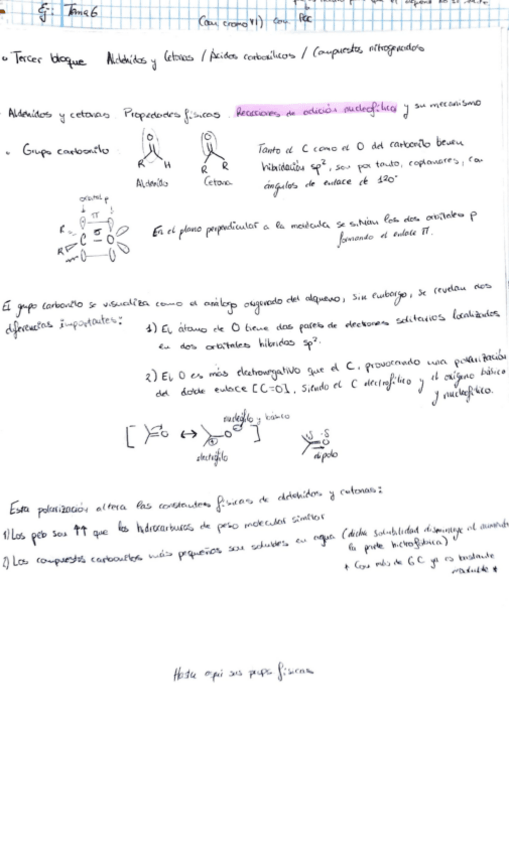 Ej: Tema 6
(con cromo VI) con PCC
• Tercer bloque Aldehídos y Cetonas / Ácidos carboxílicos / Compuestos nitrogenados
Aldehídos y cetonas. Propiedades físicas. Reacciones de adición nucleofílica y su mecanismo
• Grupo carbonilo
O
O
R H
R R
Aldehído
Cetona
Tanto el C como el O del carbonilo tienen
hibridación sp², son por tanto, coplanares, con
ángulos de enlace de 120°
orbital p
π
R C σ O
R
En el plano perpendicular a la molécula se sitúan los dos orbitales p
formando el enlace π.
El grupo carbonilo se visualiza como el análogo oxigenado del alqueno, sin embargo, se revelan dos
diferencias importantes:
1) El átomo de O tiene dos pares de electrones solitarios localizados
en dos orbitales híbridos sp².
2) El O es más electronegativo que el C, provocando una polarización
del doble enlace [C=O], siendo el C electrófilo y el oxígeno básico
y nucleofílico.
nucleófilo y básico
electrófilo
dipolo
Esta polarización altera las constantes físicas de aldehídos y cetonas:
1) Los peb son ↑↑ que los hidrocarburos de peso molecular similar
2) Los compuestos carbonílicos más pequeños son solubles en agua (dicha solubilidad disminuye al aumentar
la parte hidrofóbica)
* Con más de 6C ya es bastante
insoluble *
Hasta aquí sus props físicas